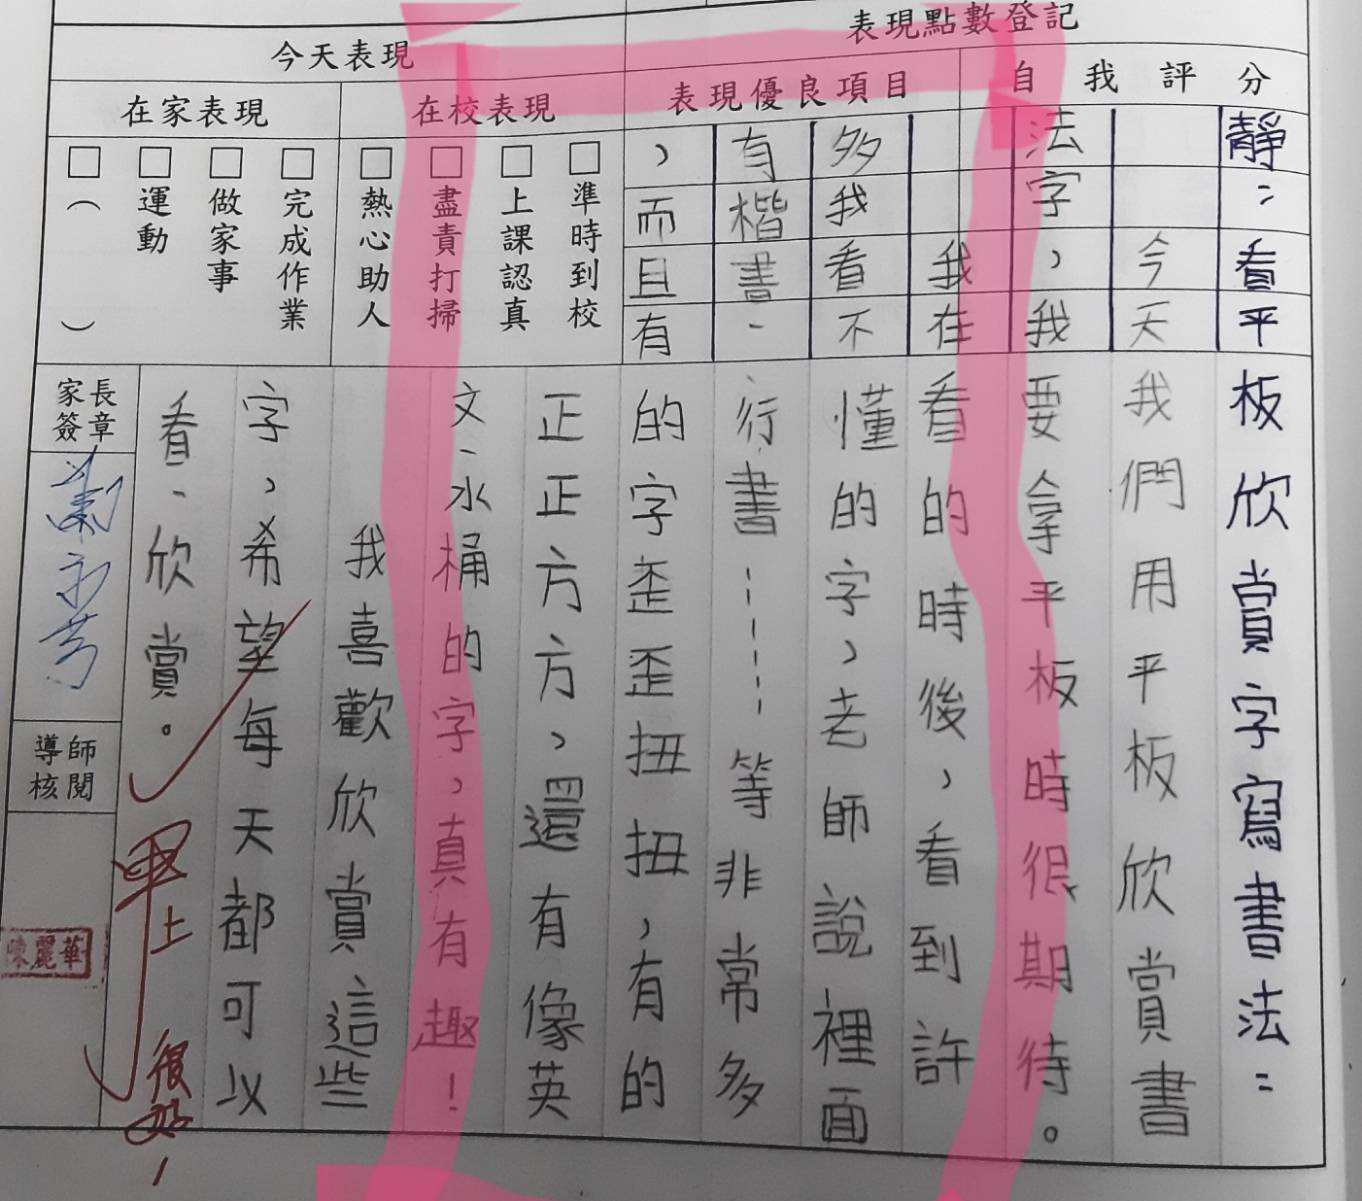 今天表現
表現點數登記
在家表現
在校表現
表現優良項目
自我評分
□準時到校
□上課認真
□盡責打掃
□熱心助人
□完成作業
□做家事
□運動
□（ ）
靜：看平板欣賞字寫書法：
今天我們用平板欣賞書
法字，我要拿平板時很期待。
我在看的時後，看到許
多我看不懂的字，老師說裡面
有楷書、行書……等非常多
，而且有的字歪歪扭扭，有的
正正方方，還有像英
文、水桶的字，真有趣！
我喜歡欣賞這些
字，希望每天都可以
看、欣賞。
家長簽章
導師核閱
陳麗華
上
很好！